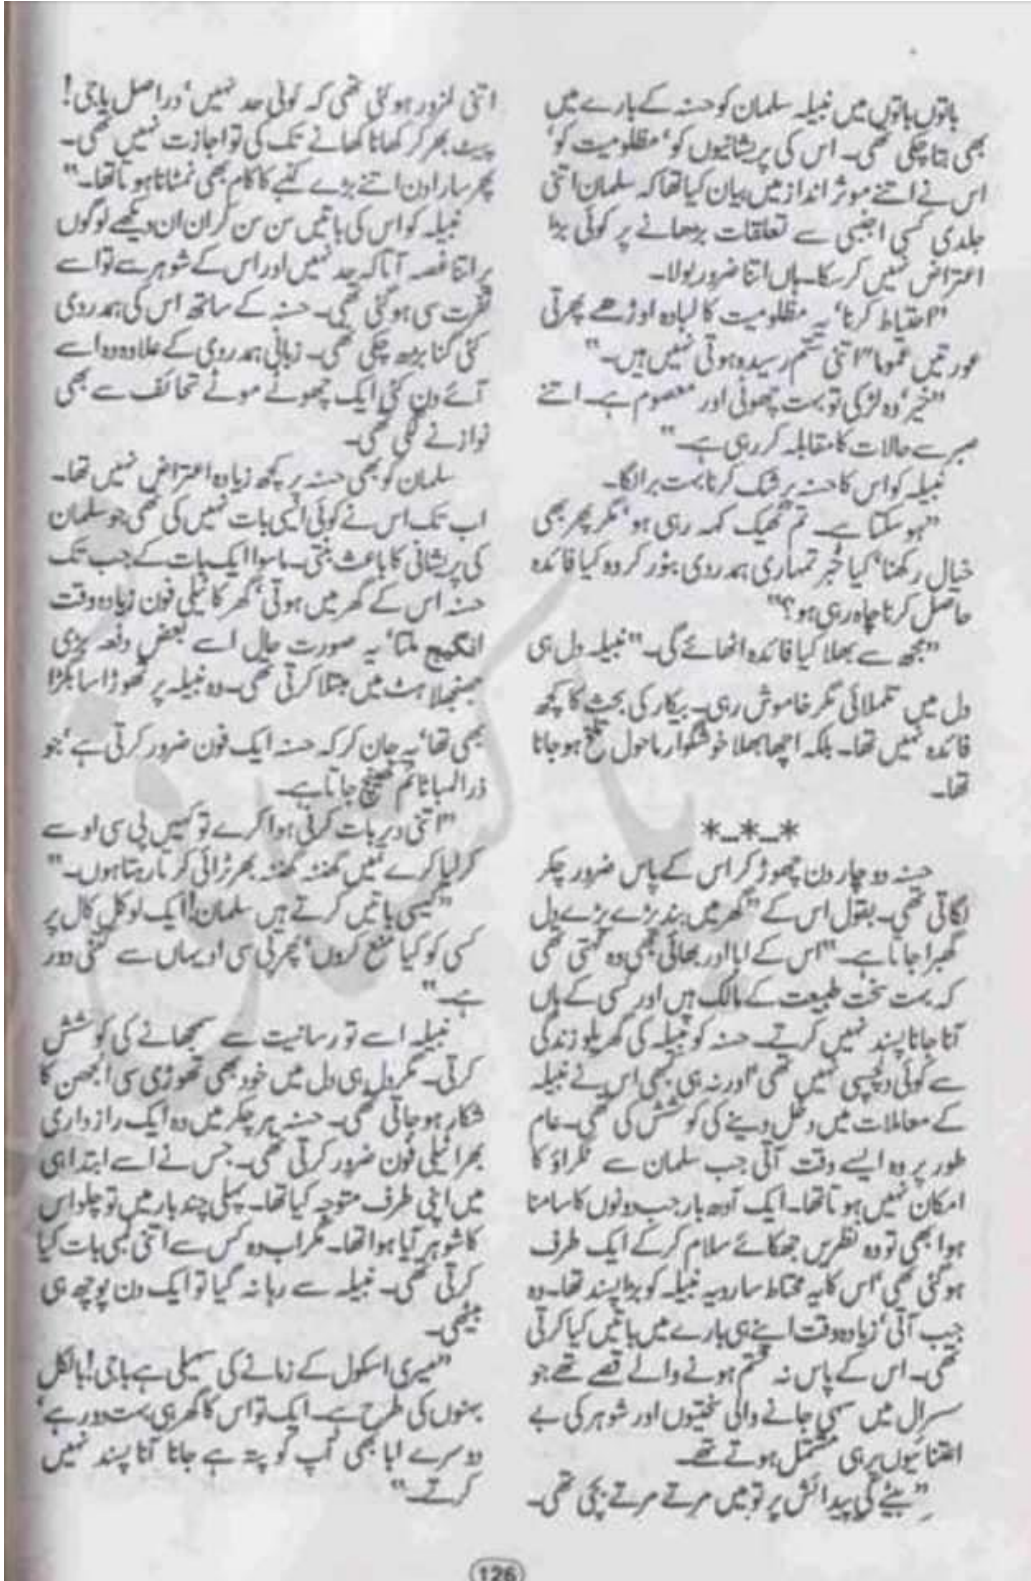 باتوں باتوں میں نبیلہ سلمان کو حسنہ کے بارے میں
بھی بتا چکی تھی۔ اس کی پریشانیوں کو، مظلومیت کو،
اس نے اتنے موثر انداز میں بیان کیا تھا کہ سلمان اتنی
جلدی کسی اجنبی سے تعلقات بڑھانے پر کوئی بڑا
اعتراض نہیں کر سکا۔ ہاں اتنا ضرور بولا۔
"احتیاط کرنا، یہ مظلومیت کا لبادہ اوڑھے پھرتی
عورتیں عموما" اتنی ستم رسیدہ ہوتی نہیں ہیں۔"
"خیر، وہ لڑکی تو بہت چھوٹی اور معصوم ہے۔ اتنے
صبر سے حالات کا مقابلہ کر رہی ہے۔"
نبیلہ کو اس کا حسنہ پر شک کرنا بہت برا لگا۔
"ہو سکتا ہے۔ تم ٹھیک کہہ رہی ہو، مگر پھر بھی
خیال رکھنا، کیا خبر تمہاری ہمدردی بٹور کر وہ کیا فائدہ
حاصل کرنا چاہ رہی ہو؟"
"مجھ سے بھلا کیا فائدہ اٹھائے گی۔" نبیلہ دل ہی
دل میں تلملائی مگر خاموش رہی۔ بیکار کی بحث کا کچھ
فائدہ نہیں تھا۔ بلکہ اچھا بھلا خوشگوار ماحول تلخ ہو جاتا
تھا۔
*_*_*
حسنہ دو چار دن چھوڑ کر اس کے پاس ضرور چکر
لگاتی تھی۔ بقول اس کے "گھر میں بند پڑے پڑے دل
گھبرا جاتا ہے۔" اس کے ابا اور بھائی بھی وہ کہتی تھی
کہ بہت سخت طبیعت کے مالک ہیں اور کسی کے ہاں
آنا جانا پسند نہیں کرتے۔ حسنہ کو نبیلہ کی گھریلو زندگی
سے کوئی دلچسپی نہیں تھی، اور نہ ہی کبھی اس نے نبیلہ
کے معاملات میں دخل دینے کی کوشش کی تھی۔ عام
طور پر وہ ایسے وقت آتی جب سلمان سے ٹکراؤ کا
امکان نہیں ہوتا تھا۔ ایک آدھ بار جب دونوں کا سامنا
ہوا بھی تو وہ نظریں جھکائے سلام کر کے ایک طرف
ہو گئی تھی، اس کا یہ محتاط سا رویہ نبیلہ کو بڑا پسند تھا۔ وہ
جب آتی، زیادہ وقت اپنے ہی بارے میں باتیں کیا کرتی
تھی۔ اس کے پاس نہ ختم ہونے والے قصے تھے جو
سسرال میں سہی جانے والی سختیوں اور شوہر کی بے
اعتنائیوں پر ہی مشتمل ہوتے تھے۔
"بیٹے کی پیدائش پر تو میں مرتے مرتے بچی تھی۔
اتنی کمزور ہو گئی تھی کہ کوئی حد نہیں، دراصل باجی!
پیٹ بھر کر کھانا کھانے تک کی تو اجازت نہیں تھی۔
پھر سارا دن اتنے بڑے کنبے کا کام بھی نمٹانا ہوتا تھا۔"
نبیلہ کو اس کی باتیں سن سن کر ان ان دیکھے لوگوں
پر اتنا غصہ آتا کہ حد نہیں اور اس کے شوہر سے تو اسے
نفرت سی ہو گئی تھی۔ حسنہ کے ساتھ اس کی ہمدردی
کئی گنا بڑھ چکی تھی۔ زبانی ہمدردی کے علاوہ وہ اسے
آئے دن کئی ایک چھوٹے موٹے تحائف سے بھی
نوازنے لگی تھی۔
سلمان کو بھی حسنہ پر کچھ زیادہ اعتراض نہیں تھا۔
اب تک اس نے کوئی ایسی بات نہیں کی تھی جو سلمان
کی پریشانی کا باعث بنتی۔ ماسوا ایک بات کے جب تک
حسنہ اس کے گھر میں ہوتی، گھر کا ٹیلی فون زیادہ وقت
انگیج ملتا، یہ صورت حال اسے بعض دفعہ بڑی
جھنجھلاہٹ میں مبتلا کرتی تھی۔ وہ نبیلہ پر تھوڑا سا بگڑا
بھی تھا، یہ جان کر کہ حسنہ ایک فون ضرور کرتی ہے، جو
ذرا لمبا ٹائم کھینچ جاتا ہے۔
"اتنی دیر بات کرنی ہوا کرے تو کہیں پی سی او سے
کر لیا کرے میں گھنٹہ گھنٹہ بھر ٹرائی کرتا رہتا ہوں۔"
"کیسی باتیں کرتے ہیں سلمان! ایک لوکل کال پر
کسی کو کیا منع کروں، پھر پی سی او یہاں سے کتنی دور
ہے۔"
نبیلہ اسے تو رسانیت سے سمجھانے کی کوشش
کرتی۔ مگر دل ہی دل میں خود بھی تھوڑی سی الجھن کا
شکار ہو جاتی تھی۔ حسنہ ہر چکر میں وہ ایک رازداری
بھرا ٹیلی فون ضرور کرتی تھی۔ جس نے اسے ابتدا ہی
میں اپنی طرف متوجہ کیا تھا۔ پہلی چند بار میں تو چلو اس
کا شوہر آیا ہوا تھا۔ مگر اب وہ کس سے اتنی لمبی بات کیا
کرتی تھی۔ نبیلہ سے رہا نہ گیا تو ایک دن پوچھ ہی
بیٹھی۔
"میری اسکول کے زمانے کی سہیلی ہے باجی! بالکل
بہنوں کی طرح ہے۔ ایک تو اس کا گھر ہی بہت دور ہے،
دوسرے ابا بھی آپ کو پتہ ہے جانا آنا پسند نہیں
کرتے۔"
126